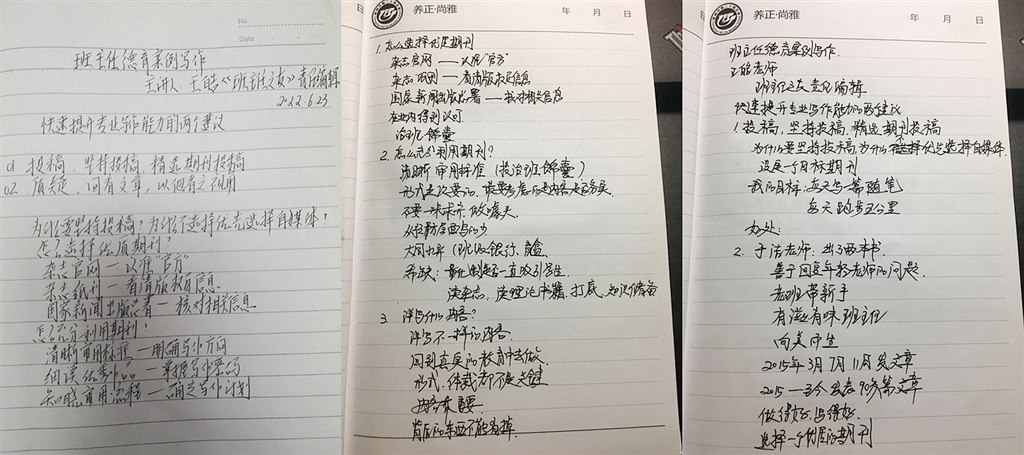 No.
Date
班主任德育案例写作
主讲人：王皓《班主任之友》责任编辑
2022.6.23
快速提升专业写作能力的两个建议
01 投稿，坚持投稿，精选期刊投稿
02 有文章，以
为什么要坚持投稿？为什么不选择优先选择自媒体？
怎么选择优质期刊？
杂志官网—认准"官方"
杂志纸刊—看清版权信息
国家新闻出版署—核对相关信息
怎么充分利用期刊？
清晰审用标准—明确写作方向
细读优秀作品—掌握写作密码
知晓审用流程—确定写作计划
养正·尚雅
年 月 日
1. 怎么选择优质期刊
杂志官网——认准"官方"
杂志纸刊——看清版权信息
国家新闻出版总署——核对相关信息
在业内得到认可
治班锦囊
2. 怎么充分利用期刊？
清晰审用标准（投治班锦囊）
形式是次要的，最要考虑的是内容是否务实
不要一味求
大同小异（班级银行、盲盒
一直吸引学生
读杂志，读理论书籍，打底，知识储备
3. 评写什么内容？
评写不一样的内容
回到真实的教育中去做
形式、体裁都不是关键
内容最重要
背后的东西不能丢掉
养正·尚雅
年 月 日
班主任德育案例写作
王皓老师
班主任之友责任编辑
快速提升专业写作能力的两个建议
1. 投稿，坚持投稿，精选期刊投稿
为什么要坚持投稿，为什么不选择优先选择自媒体
设定一个目标期刊
我的目标：每天写一篇随笔
每天跑步五公里
好处：
2. 于洁老师：出了两本书
基于回复年轻老师的问题
老班带新手
有滋有味班主任
向美而生
2015年3月7月11月发文章
2015—至今 发表90多篇文章
做得好，写得好
选择一个优质的期刊